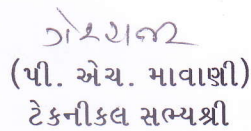 (પી. એચ. માવાણી)
ટેકનીકલ સભ્યશ્રી